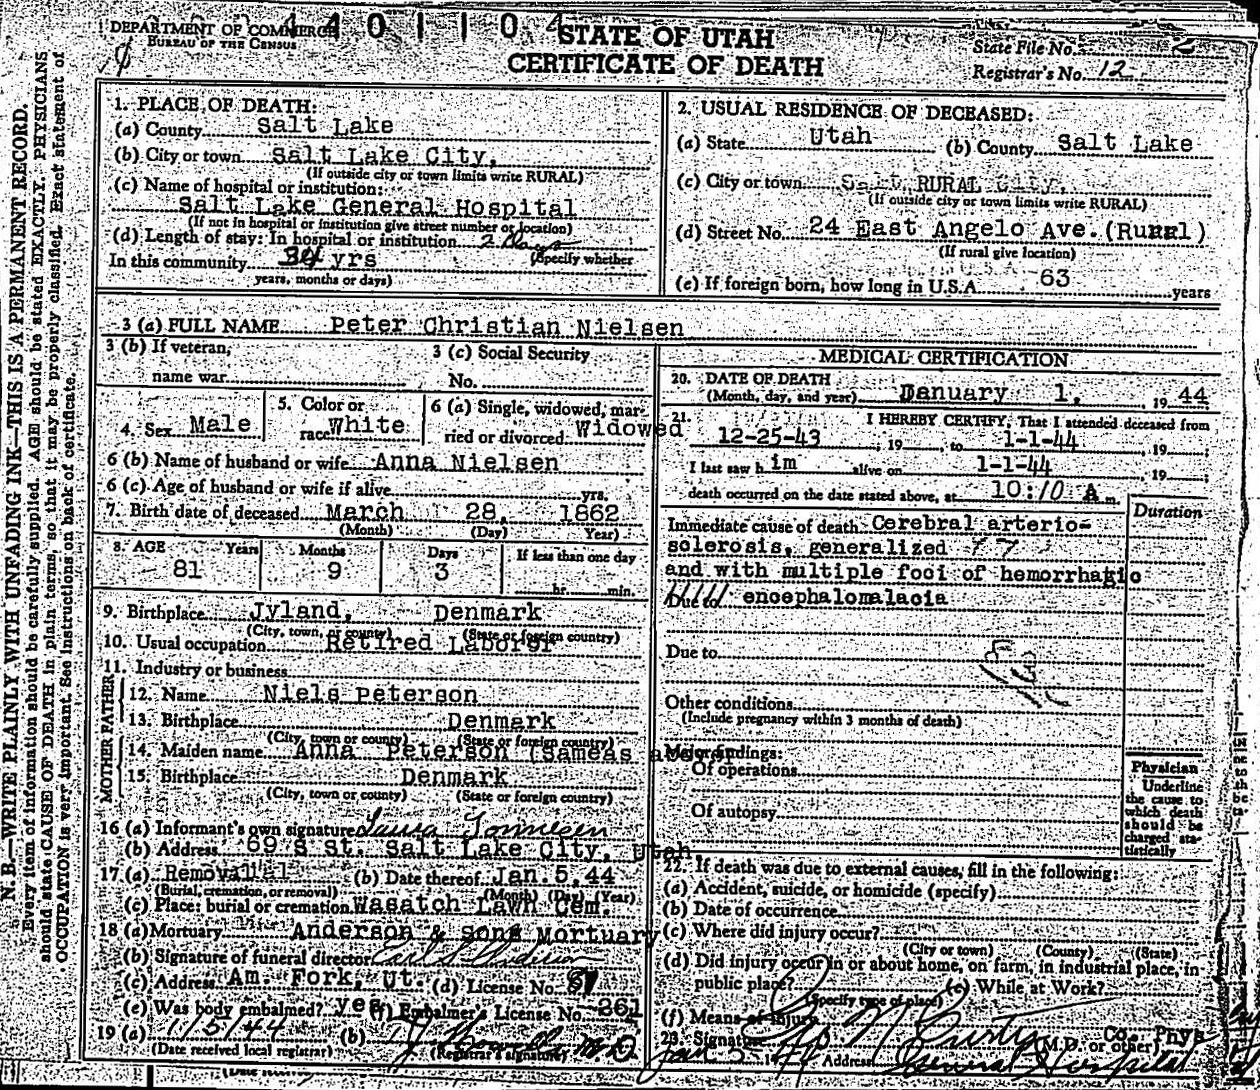 DEPARTMENT OF COMMERCE
BUREAU OF THE CENSUS
4401104
STATE OF UTAH
CERTIFICATE OF DEATH
State File No. 2
Registrar's No. 12
N. B.—WRITE PLAINLY WITH UNFADING INK—THIS IS A PERMANENT RECORD.
Every item of information should be carefully supplied. AGE should be stated EXACTLY. PHYSICIANS
should state CAUSE OF DEATH in plain terms, so that it may be properly classified. Exact statement of
OCCUPATION is very important. See instructions on back of certificate.
1. PLACE OF DEATH:
(a) County Salt Lake
(b) City or town Salt Lake City,
(If outside city or town limits write RURAL)
(c) Name of hospital or institution:
Salt Lake General Hospital
(If not in hospital or institution give street number or location)
(d) Length of stay: In hospital or institution 2 Days
(Specify whether
In this community yrs
years, months or days)
2. USUAL RESIDENCE OF DECEASED:
(a) State Utah (b) County Salt Lake
(c) City or town Salt RURAL City,
(If outside city or town limits write RURAL)
(d) Street No. 24 East Angelo Ave. (Rural)
(If rural give location)
(e) If foreign born, how long in U.S.A. 63 years
3 (a) FULL NAME Peter Christian Nielsen
3 (b) If veteran,
name war
3 (c) Social Security
No.
4. Sex Male
5. Color or
race White
6 (a) Single, widowed, mar-
ried or divorced Widowed
6 (b) Name of husband or wife Anna Nielsen
6 (c) Age of husband or wife if alive yrs.
7. Birth date of deceased March 28, 1862
(Month) (Day) Year)
8. AGE Years Months Days If less than one day
81 9 3 hr. min.
9. Birthplace Jyland, Denmark
(City, town, or county) (State or foreign country)
10. Usual occupation Retired Laborer
11. Industry or business
FATHER
12. Name Niels Peterson
13. Birthplace Denmark
(City, town or county) (State or foreign country)
MOTHER
14. Maiden name Anna Peterson (Sameas above)
15. Birthplace Denmark
(City, town or county) (State or foreign country)
16 (a) Informant's own signature Laura Tonniesen
(b) Address 69 S St. Salt Lake City, Utah.
17 (a) Removal (b) Date thereof Jan. 5, 44
(Burial, cremation, or removal) (Month) (Day) (Year)
(c) Place: burial or cremation Wasatch Lawn Cem.
18 (a) Mortuary Anderson & sons Mortuary
(b) Signature of funeral director Earl S Anderson
(c) Address Am. Fork, Ut. (d) License No.
(e) Was body embalmed? yes (f) Embalmer's License No. 261
19 (a) 1/5/44 (b) M D
(Date received local registrar) (Registrar's signature)
MEDICAL CERTIFICATION
20. DATE OF DEATH
(Month, day, and year) January 1, 19 44
21. I HEREBY CERTIFY, That I attended deceased from
12-25-43, 19 , to 1-1-44 , 19
I last saw h im alive on 1-1-44 , 19
death occurred on the date stated above, at 10:10 A m.
Duration
Immediate cause of death Cerebral arterio-
solerosis, generalized
and with multiple foci of hemorrhagic
Due to encephalomalacia
Due to
Other conditions
(Include pregnancy within 3 months of death)
Major findings:
Of operations
Of autopsy
Physician
Underline
the cause to
which death
should be
charged sta-
tistically
22. If death was due to external causes, fill in the following:
(a) Accident, suicide, or homicide (specify)
(b) Date of occurrence
(c) Where did injury occur?
(City or town) (County) (State)
(d) Did injury occur in or about home, on farm, in industrial place, in
public place? (e) While at Work?
(Specify type of place)
(f) Means of injury
23. Signature Co. Phys
(M.D. or other)
Address General Hospital